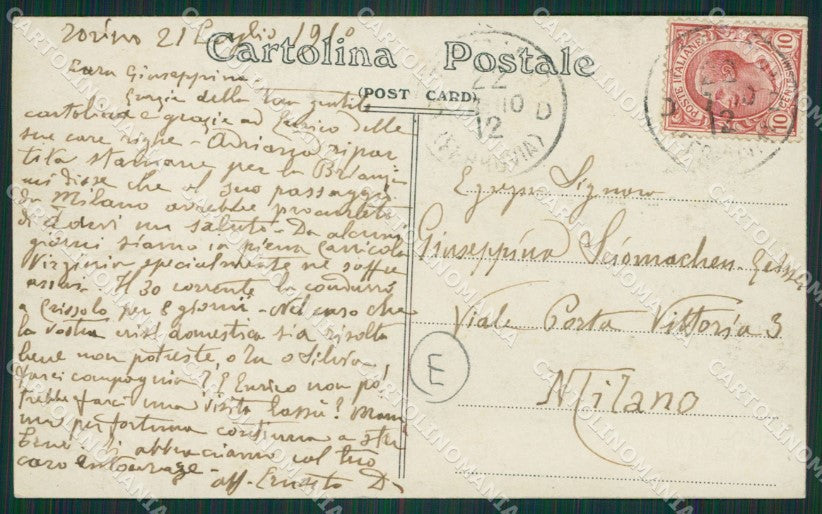 Torino 21 Luglio 1910
Cartolina Postale
(POST CARD)
Cara Giuseppina
Grazie della tua gentile
cartolina e grazie ad Enrico delle
sue care righe - Adriana ripar
tita stamane per la
mi disse che il suo passaggio
da Milano avrebbe procurato
di darvi un saluto - Da alcuni
giorni siamo in piena canicola
Virginia specialmente ne soffre
assai. Il 30 corrente la condurrò
a Crissolo per 8 giorni - Nel caso che
la vostra crisi domestica sia risolta
bene non potreste o tu o Silvia
farci compagnia? E Enrico non po
trebbe farci una visita lassù? Mam
ma per fortuna continua a star
bene. Ti abbracciamo col tuo
caro entourage -
aff. Ernesto D.
Egregia Signora
Giuseppina
Viale Porta Vittoria 3
Milano
E
POSTE ITALIANE
CENTESIMI
10
10
22
10
D
12
(FERROVIA)
CARTOLINOMANIA